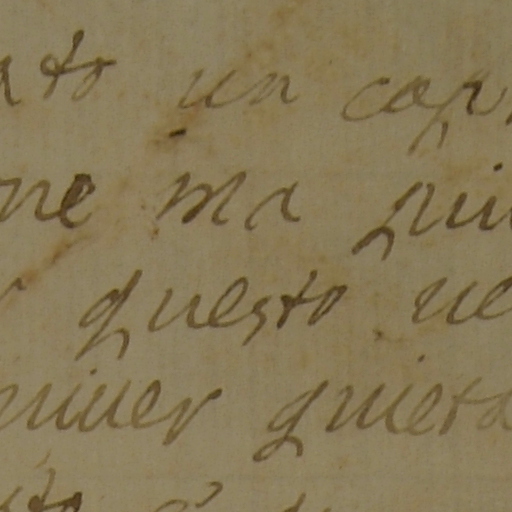 ato un cap
ne ma piu
questo ue
uiuer quieta